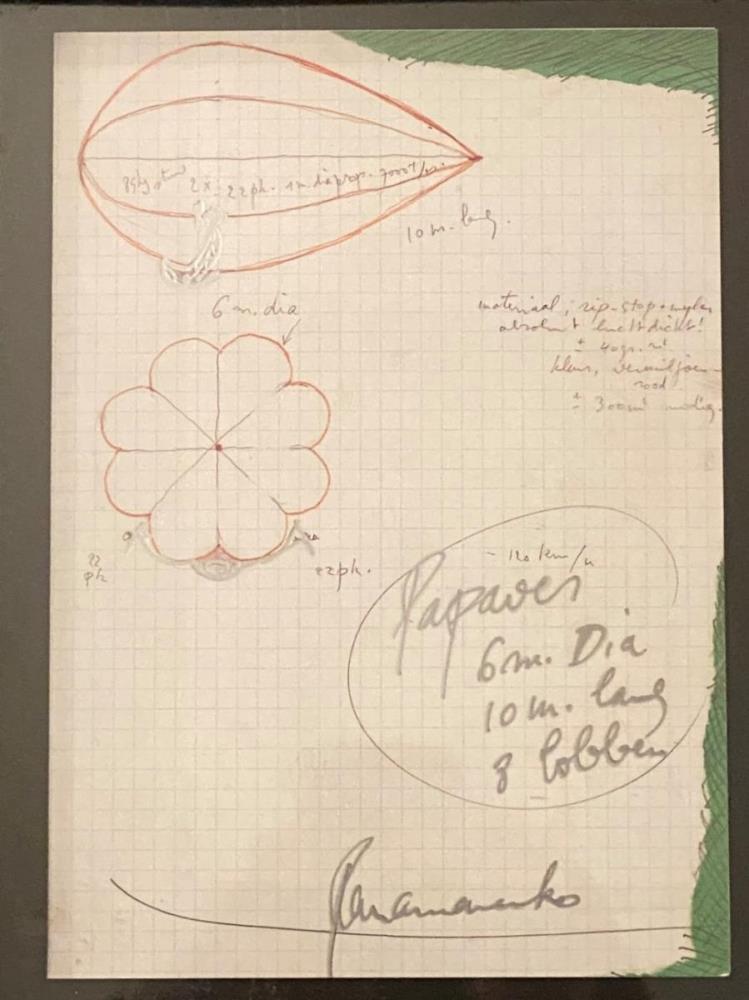 2 x 22pk. 1m. diaprop. 7000 T/m.
10 m. lang.
6 m. dia
materiaal, rip-stop + mylar
absoluut luchtdicht!
± 40gr. m²
kleur, vermiljoen-
rood
± 300m² nodig.
22
pk
22pk.
~ 120 km/u
Papaver
6m. Dia
10 m. lang
8 lobben
Panamarenko